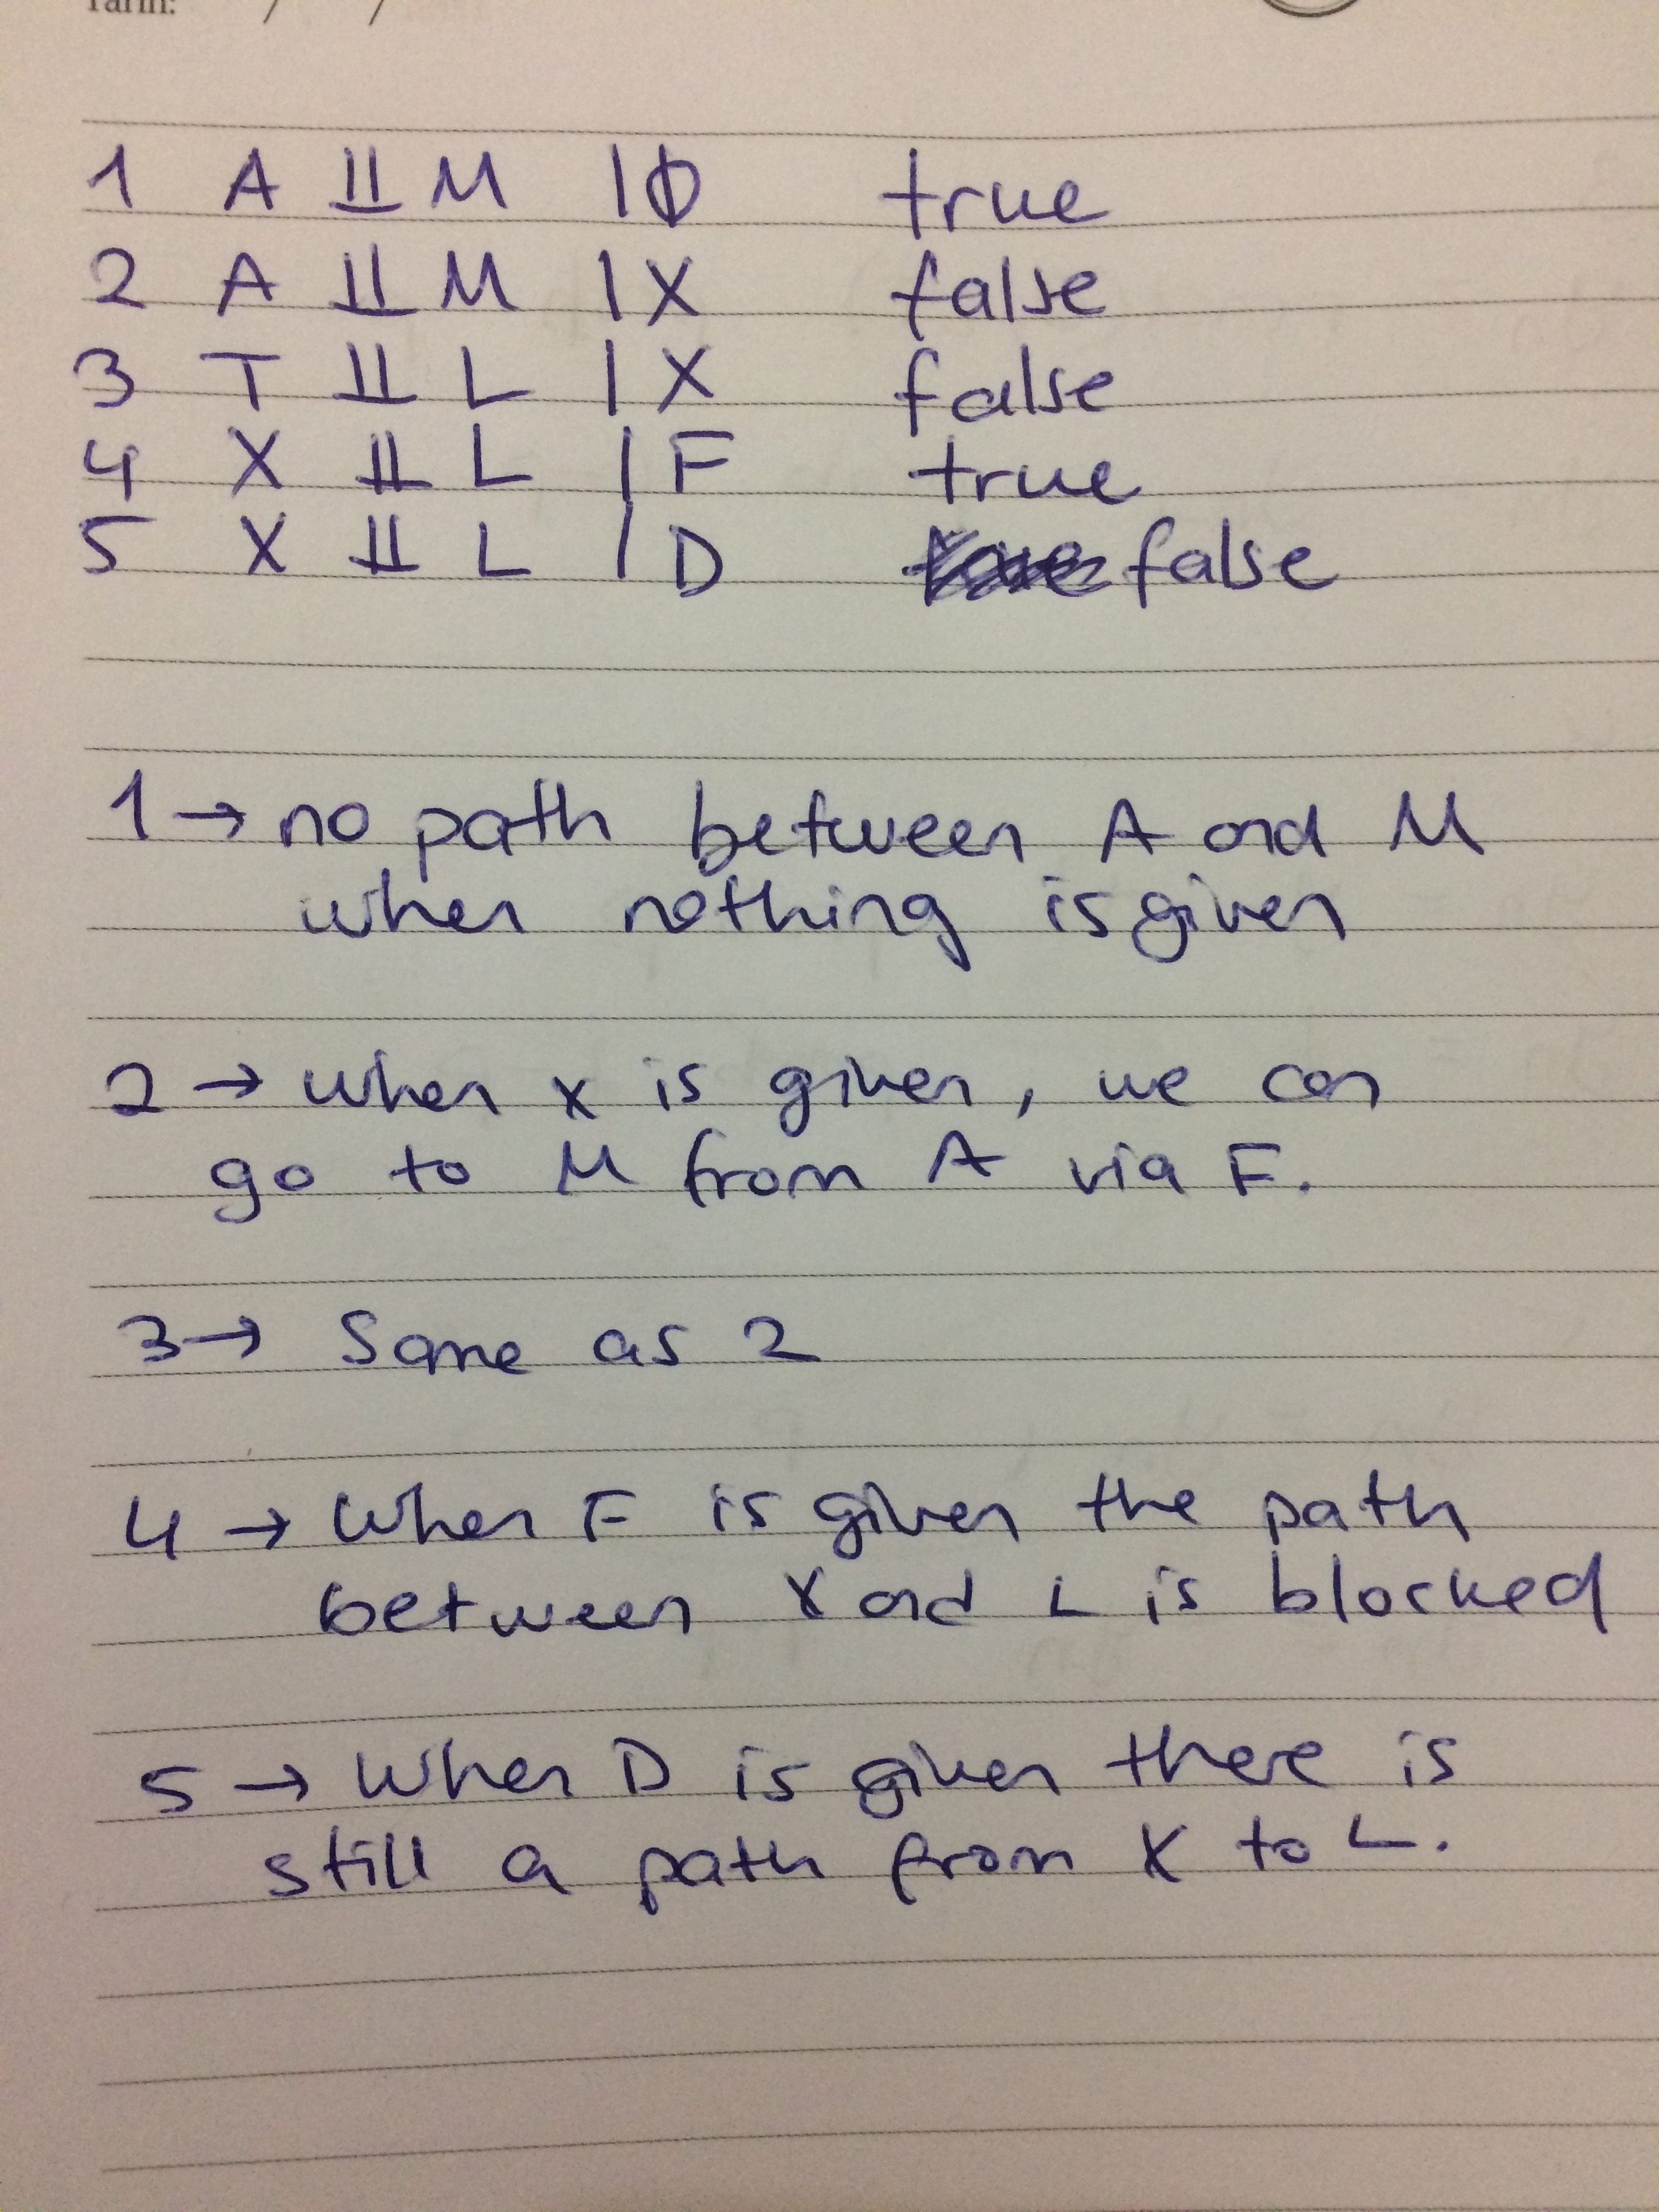 Tarih: / /
1 A ⫫ M | ∅ true
2 A ⫫ M | X false
3 T ⫫ L | X false
4 X ⫫ L | F true
5 X ⫫ L | D false
1 → no path between A and M
when nothing is given
2 → when x is given, we can
go to M from A via F.
3 → Same as 2
4 → When F is given the path
between X and L is blocked
5 → When D is given there is
still a path from X to L.